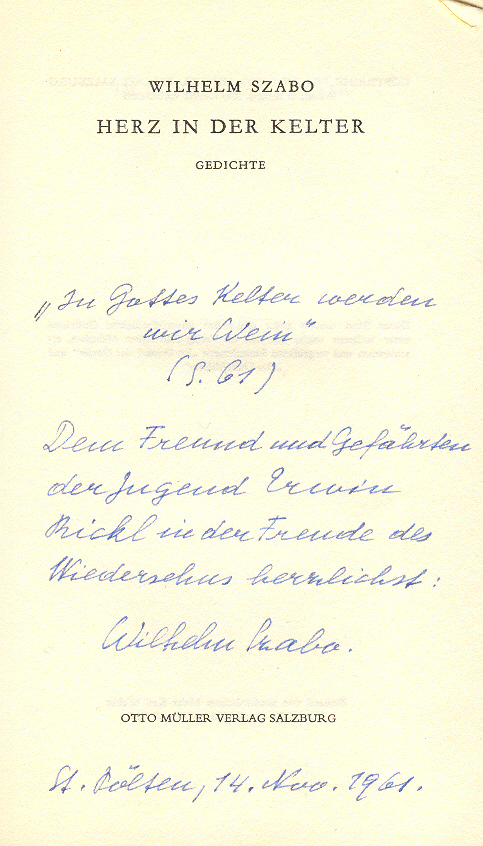 WILHELM SZABO
HERZ IN DER KELTER
GEDICHTE
„In Gottes Kelter werden
wir Wein"
(S. 61)
Dem Freund und Gefährten
der Jugend Erwin
Rickl in der Freude des
Wiedersehns herzlichst:
Wilhelm Szabo.
OTTO MÜLLER VERLAG SALZBURG
St. Pölten, 14. Nov. 1961.